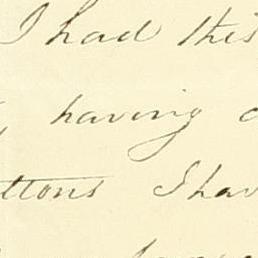 I had this
having
ttons I hav